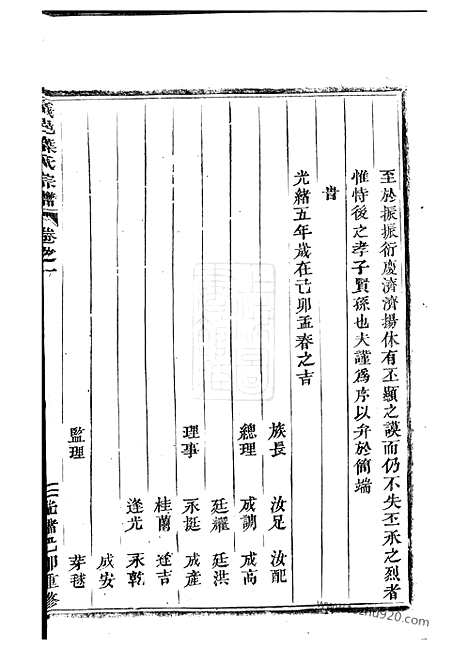 至於振振衍慶濟濟揚休有丕顯之謨而仍不失丕承之烈者
惟恃後之孝子賢孫也夫謹為序以弁於簡端
旹
光緒五年歲在己卯孟春之吉
族長 汝足 汝配
總理 成調 成高
廷耀 廷洪
理事 永挺 成產
桂蘭 逢吉
逢光 永乾
成安
監理 芽毬
義邑葉氏宗譜 卷之一
光緒己卯重修